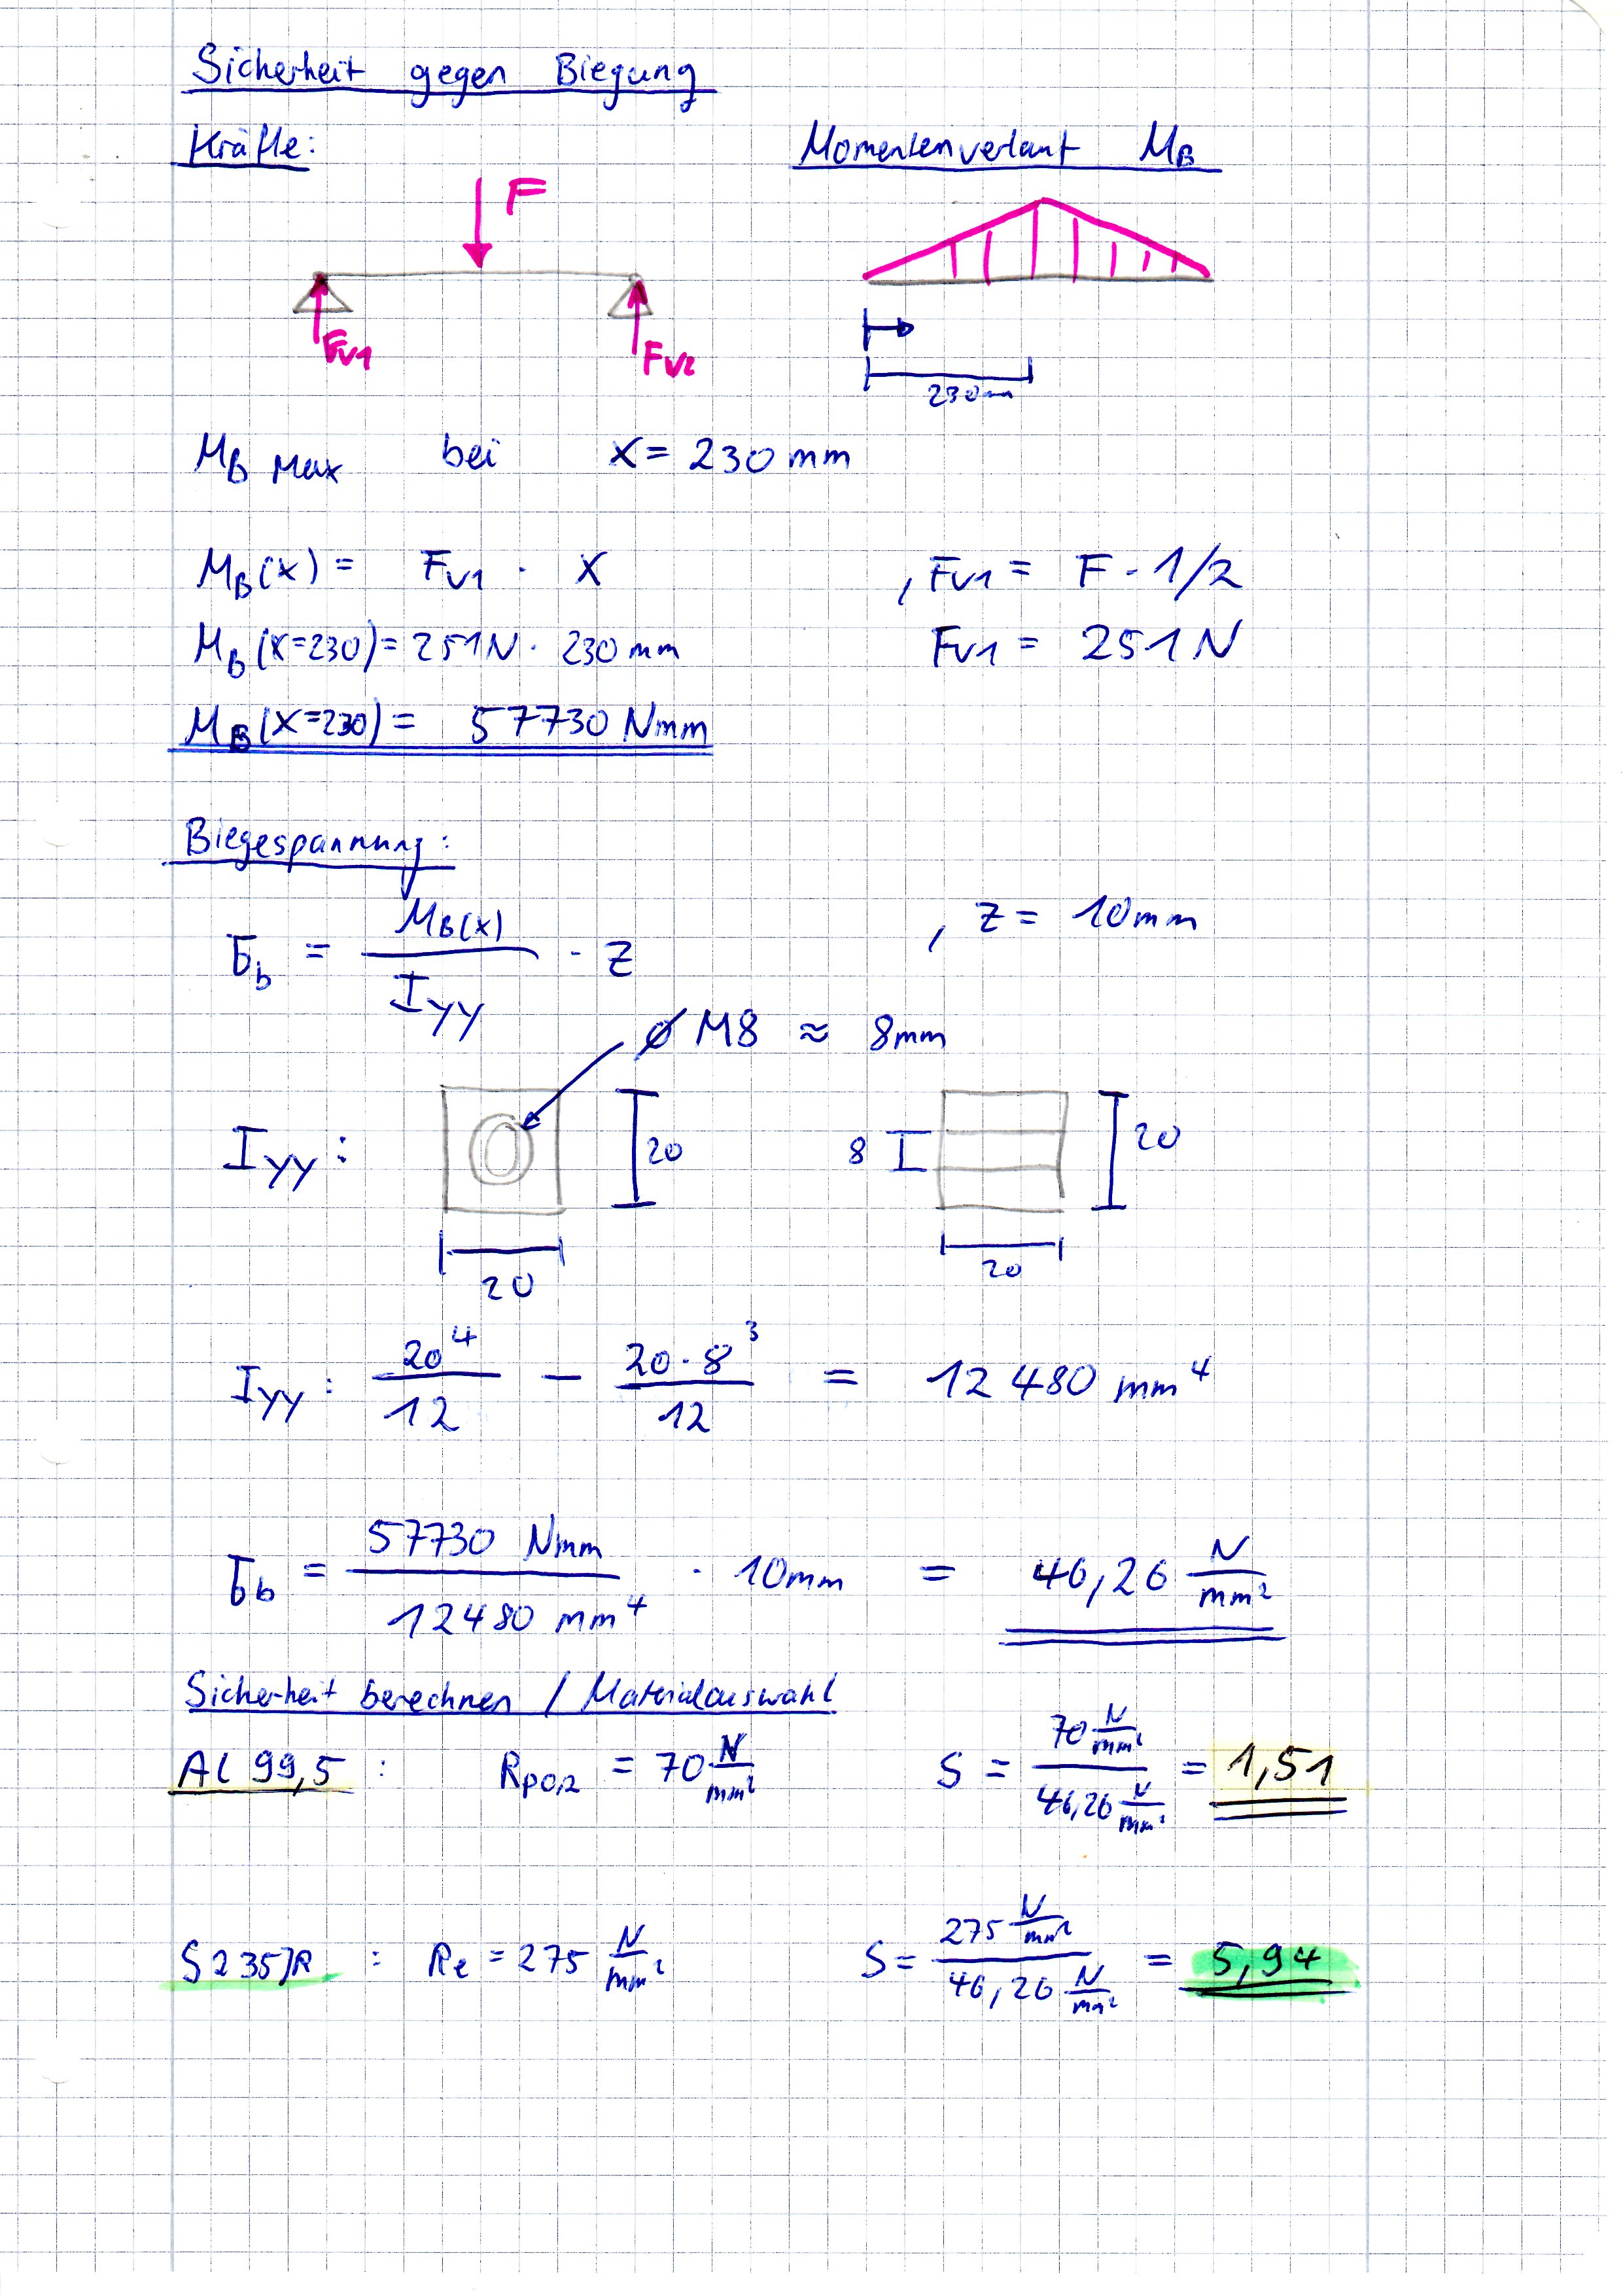 Sicherheit gegen Biegung
Kräfte: Momentenverlauf M_B
F
F_V1 F_V2
230mm
M_B Max bei X = 230 mm
M_B(X) = F_V1 · X , F_V1 = F · 1/2
M_B(X=230) = 251N · 230 mm F_V1 = 251 N
M_B(X=230) = 57730 Nmm
Biegespannung:
σ_b = M_B(x) / I_yy · z , z = 10mm
Ø M8 ≈ 8mm
I_yy : 20 8 20
20 20
I_yy : 20^4 / 12 - 20·8^3 / 12 = 12 480 mm^4
σ_b = 57730 Nmm / 12480 mm^4 · 10mm = 46,26 N/mm²
Sicherheit berechnen / Materialauswahl
Al 99,5 : R_p0,2 = 70 N/mm² S = 70 N/mm² / 46,26 N/mm² = 1,51
S235JR : Re = 275 N/mm² S = 275 N/mm² / 46,26 N/mm² = 5,94